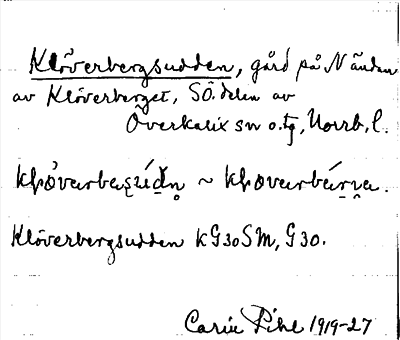 Klöverbergsudden, gård på N ändan
av Klöverberget, SÖ. delen av
Överkalix sn o. tg, Norrb. l.
~
Klöverbergsudden KG30SM, G30.
Carin Pihl 1919-27